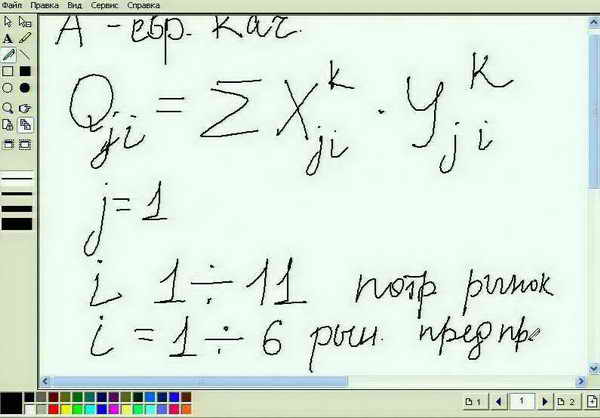 Файл Правка Вид Сервис Справка
А - евр. кач.
Qji = Σ X^k_ji · Y^k_ji
j = 1
i 1 ÷ 11 потр рынок
i = 1 ÷ 6 рын. предпр
1 1 2